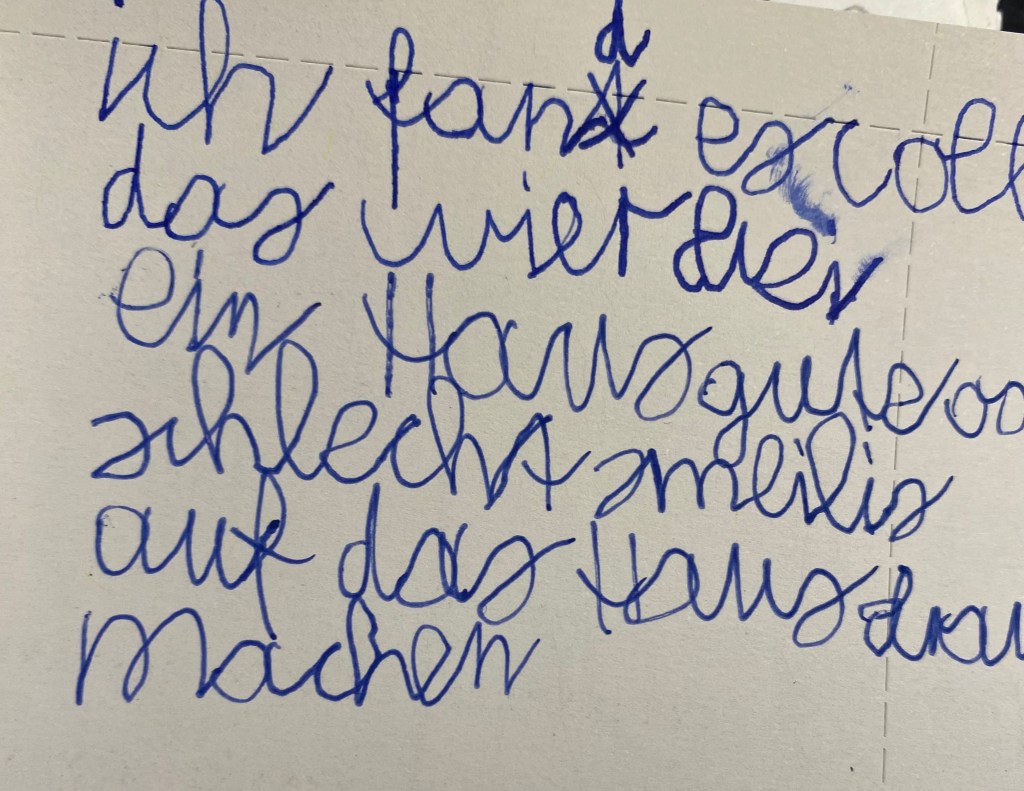 ich fand es coll
das wier
ein Haus gute
schlecht smeilis
auf das Haus drau
machen